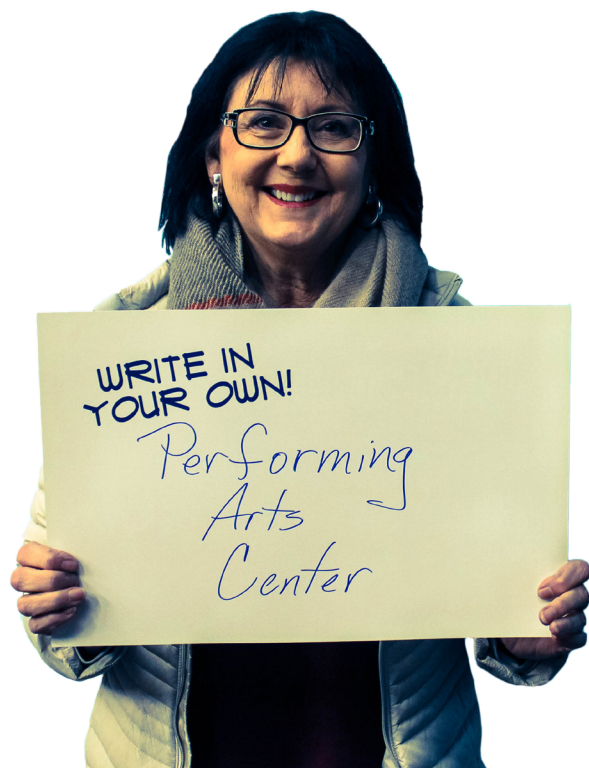 WRITE IN
YOUR OWN!
Performing
Arts
Center